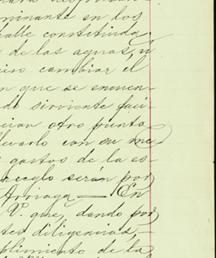 minante en los
constituida
de las aguas, y
cambiar el
en que se encuen
sirviente
otro punto
llevarlo con su
gastos de la es
arreglo serán por
Arriaga — En
V. que, dando por
diligencias,
plimiento de la